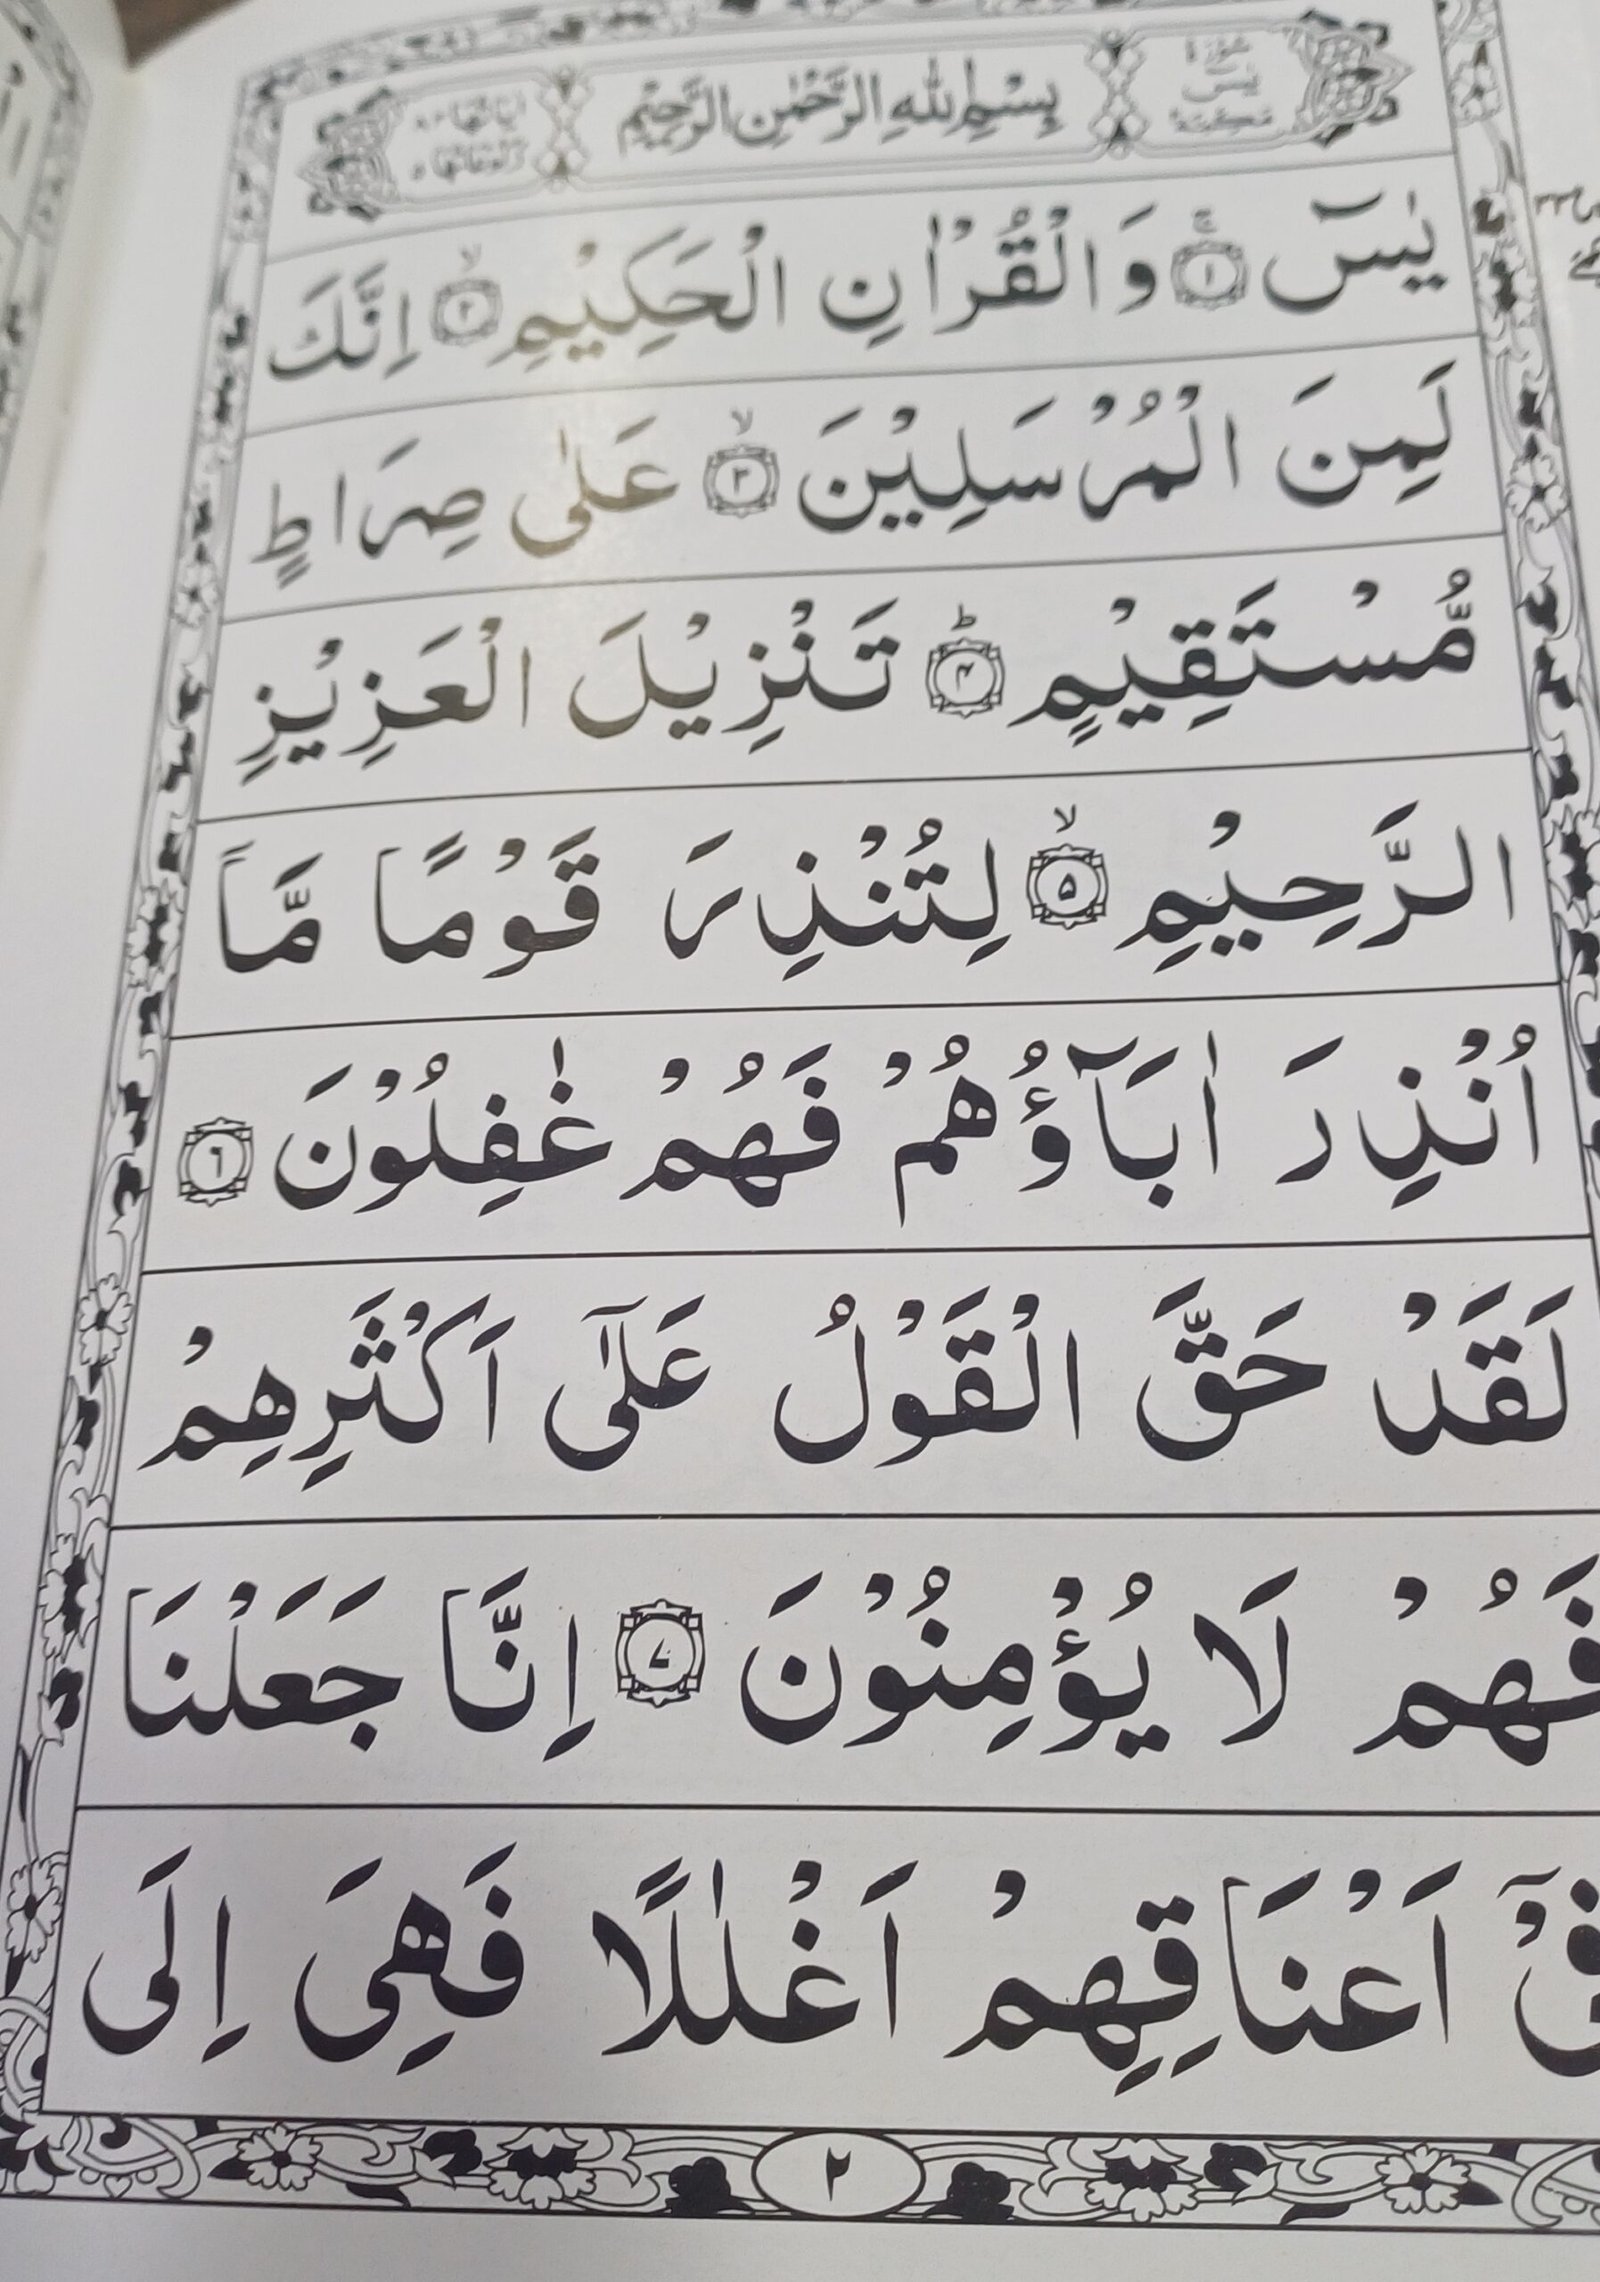 سورة يس مكية بِسْمِ اللهِ الرَّحْمٰنِ الرَّحِيْمِ
يٰسٓ ۚ﴿۱﴾ وَالْقُرْاٰنِ الْحَكِيْمِ ۙ﴿۲﴾ اِنَّكَ
لَمِنَ الْمُرْسَلِيْنَ ۙ﴿۳﴾ عَلٰى صِرَاطٍ
مُّسْتَقِيْمٍ ؕ﴿۴﴾ تَنْزِيْلَ الْعَزِيْزِ
الرَّحِيْمِ ۙ﴿۵﴾ لِتُنْذِرَ قَوْمًا مَّاۤ
اُنْذِرَ اٰبَآؤُهُمْ فَهُمْ غٰفِلُوْنَ ﴿۶﴾
لَقَدْ حَقَّ الْقَوْلُ عَلٰٓى اَكْثَرِهِمْ
فَهُمْ لَا يُؤْمِنُوْنَ ﴿۷﴾ اِنَّا جَعَلْنَا
فِيْٓ اَعْنَاقِهِمْ اَغْلٰلًا فَهِىَ اِلَى
۲